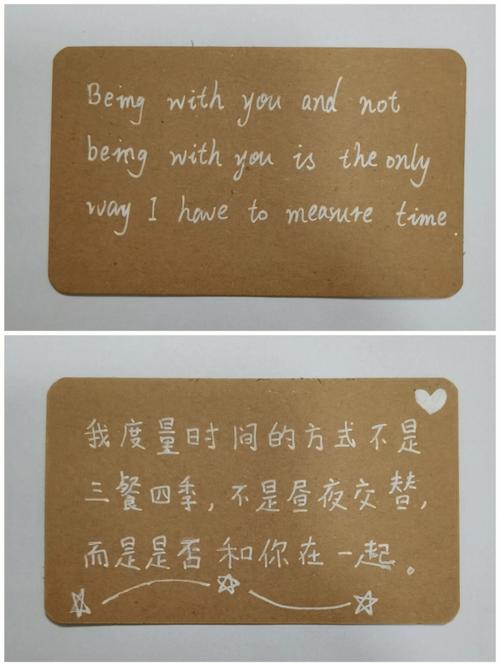 Being with you and not
being with you is the only
way I have to measure time.
我度量时间的方式不是
三餐四季，不是昼夜交替，
而是是否和你在一起。